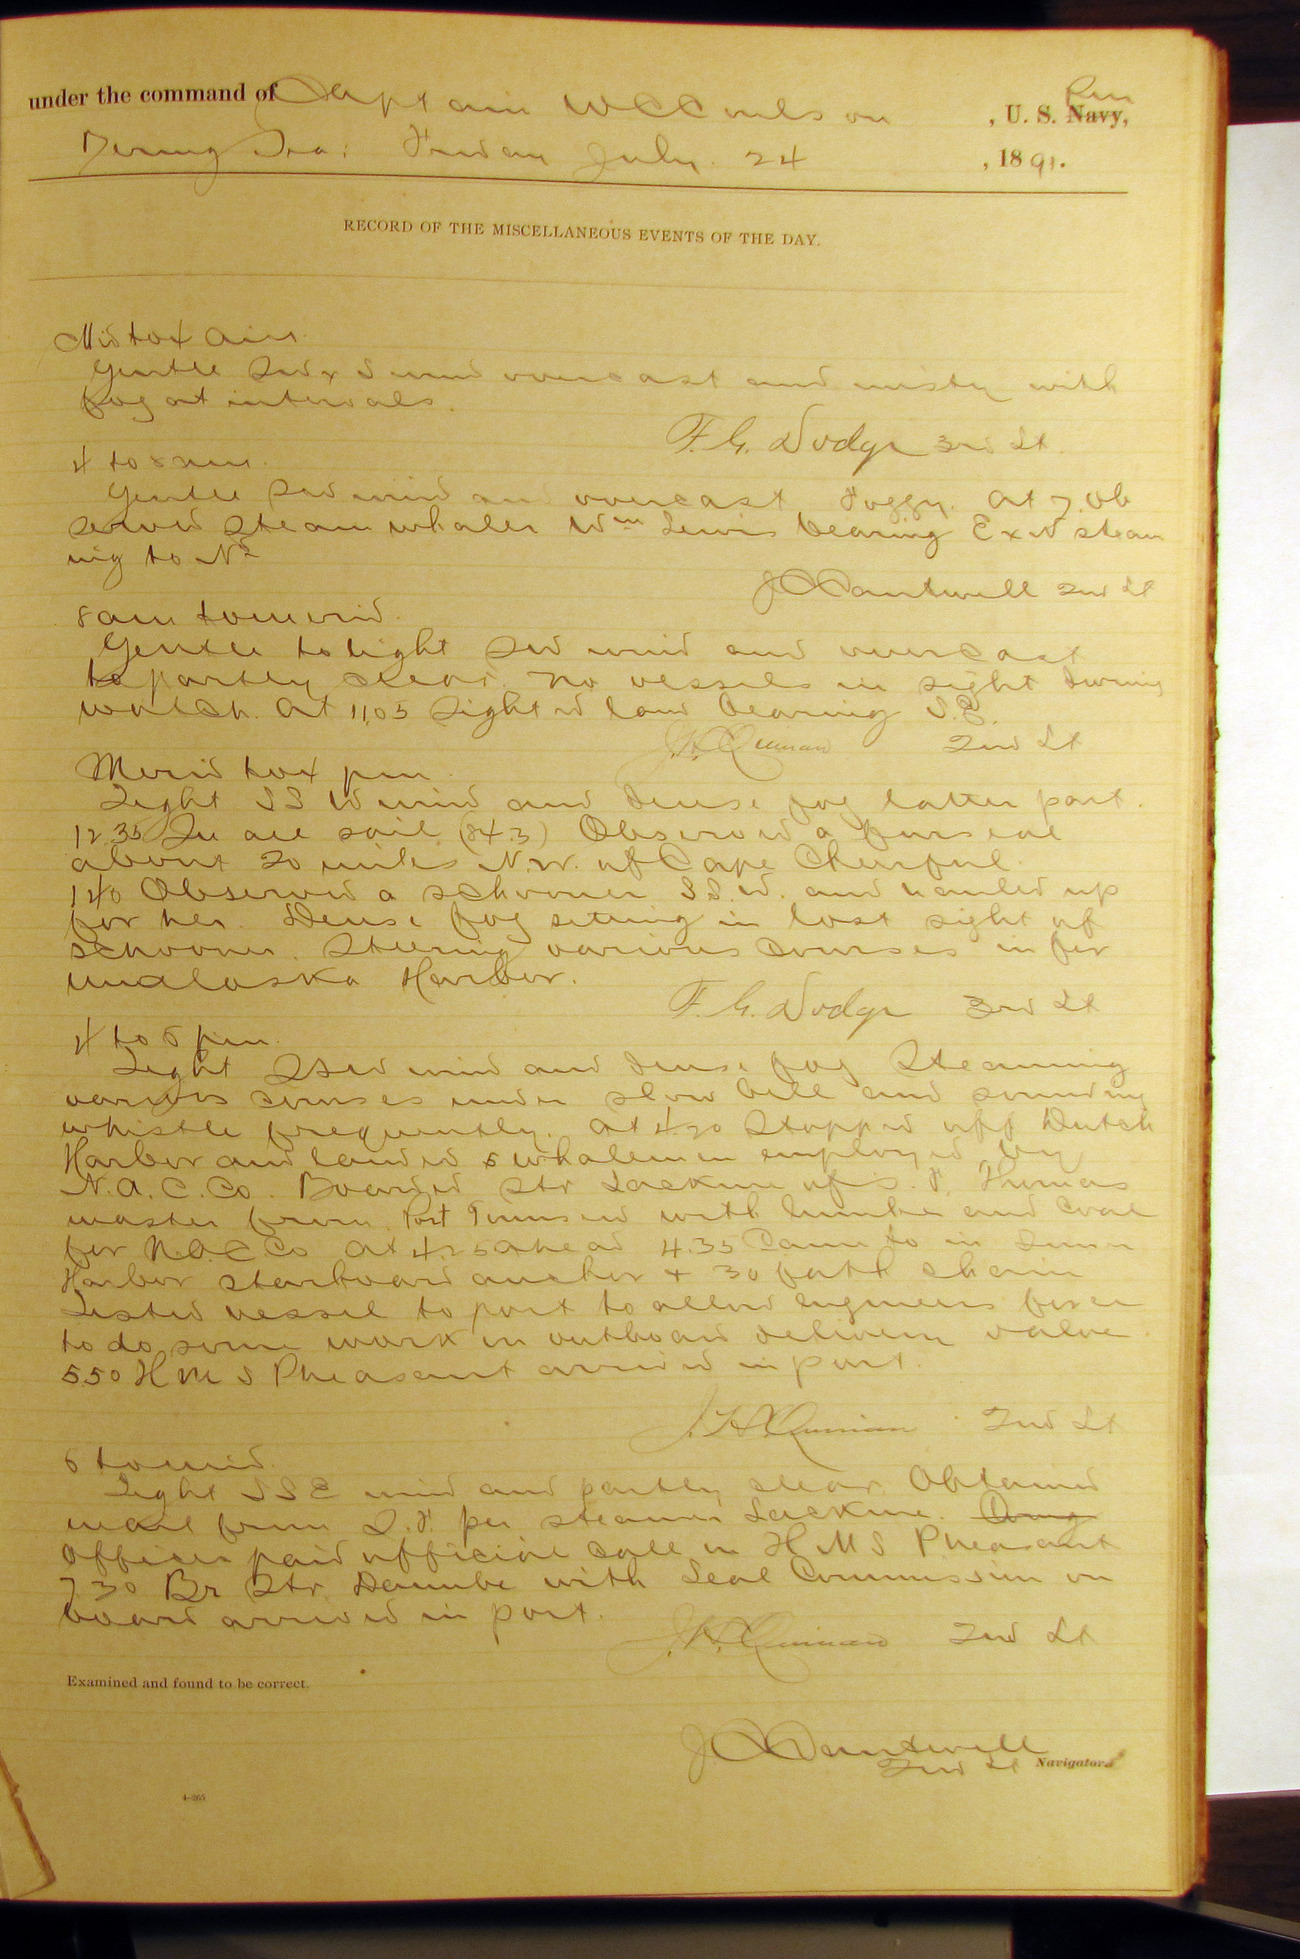 under the command of Captain W C Coulson, U. S. Navy, Rev
Bering Sea: Friday July 24, 1891.
RECORD OF THE MISCELLANEOUS EVENTS OF THE DAY.
Mid to 4 am.
Gentle Sd & wind overcast and misty with
fog at intervals.
F. G. Dodge 3rd Lt
4 to 8 am.
Gentle Sd wind and overcast foggy. At 7. Ob
served steam whaler Wm Lewis bearing E x N steam
ing to Nd
J C Cantwell 2nd Lt
8 am to merid.
Gentle to light Sd wind and overcast
to partly clear. No vessels in sight during
watch. At 11,05 Sighted land bearing S.E.
J. H. Quinan 2nd Lt
Merid to 4 pm.
Light SSW wind and dense fog latter part.
12.35 In all sail (84.3) Observed a fur seal
about 20 miles N.W. of Cape Cheerful.
1 40 Observed a schooner SSW. and hauled up
for her. Dense fog setting in lost sight of
schooner. Steering various courses in for
Unalaska Harbor.
F. G. Dodge 3rd Lt
4 to 6 pm.
Light SSW wind and dense fog Steaming
various courses under slow bell and sounding
whistle frequently. At 4.20 Stopped off Dutch
Harbor and landed 5 whalemen employed by
N. A. C. Co. Boarded Str Lackme of S. F. Thomas
master from Port Townsend with lumber and coal
for N.A.C Co At 4.25 ahead 4.35 Came to in
Harbor starboard anchor & 30 fath chain
Listed vessel to port to allow engineers force
to do some work on outboard delivery valve.
5.50 H M S Pheasant arrived in port.
J. H. Quinan 2nd Lt
6 to mid.
Light SSE wind and partly clear. Obtained
mail from S. F. per steamer Lackme.
Officer paid official call on H M S Pheasant
7 30 Br Str Danube with Seal Commission on
board arrived in port.
J. H. Quinan 2nd Lt
Examined and found to be correct.
J C Cantwell
2nd Lt Navigator.
4-265